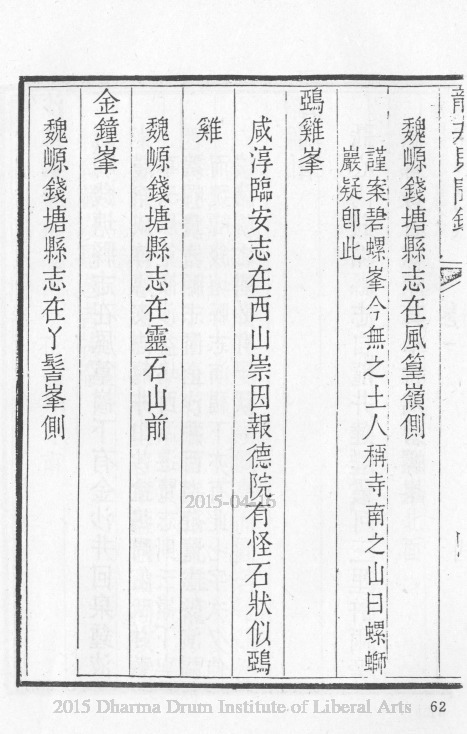 魏㟲錢塘縣志在風篁嶺側
謹案碧螺峯今無之土人稱寺南之山曰螺螄
巖疑卽此
鵶雞峯
咸淳臨安志在西山崇因報德院有怪石狀似鵶
雞
魏㟲錢塘縣志在靈石山前
金鐘峯
魏㟲錢塘縣志在丫髻峯側
2015-04-16
2015 Dharma Drum Institute of Liberal Arts
62